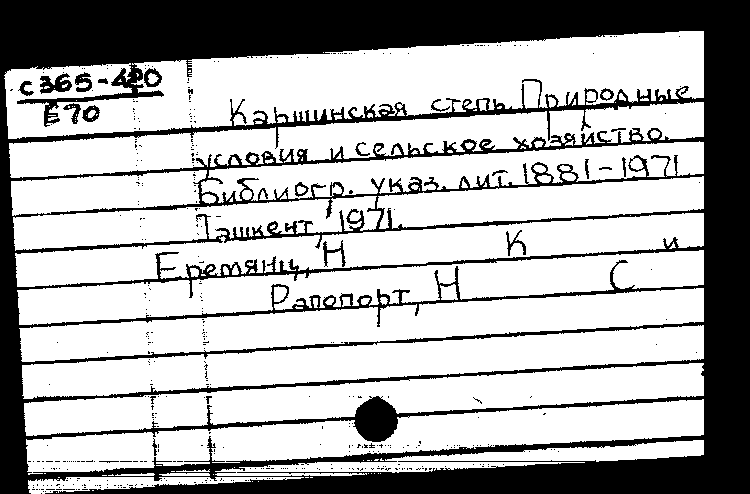 с 365-420
Е 70
Каршинская степь. Природные
условия и сельское хозяйство.
Библиогр. указ. лит. 1881-1971
Ташкент, 1971.
Еремянц, Н К и
Рапопорт, Н С